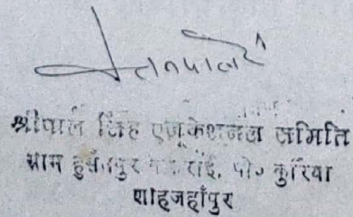 श्रीपाल सिंह एजूकेशनल समिति
ग्राम हुसैनपुर पो० कुरिया
शाहजहाँपुर